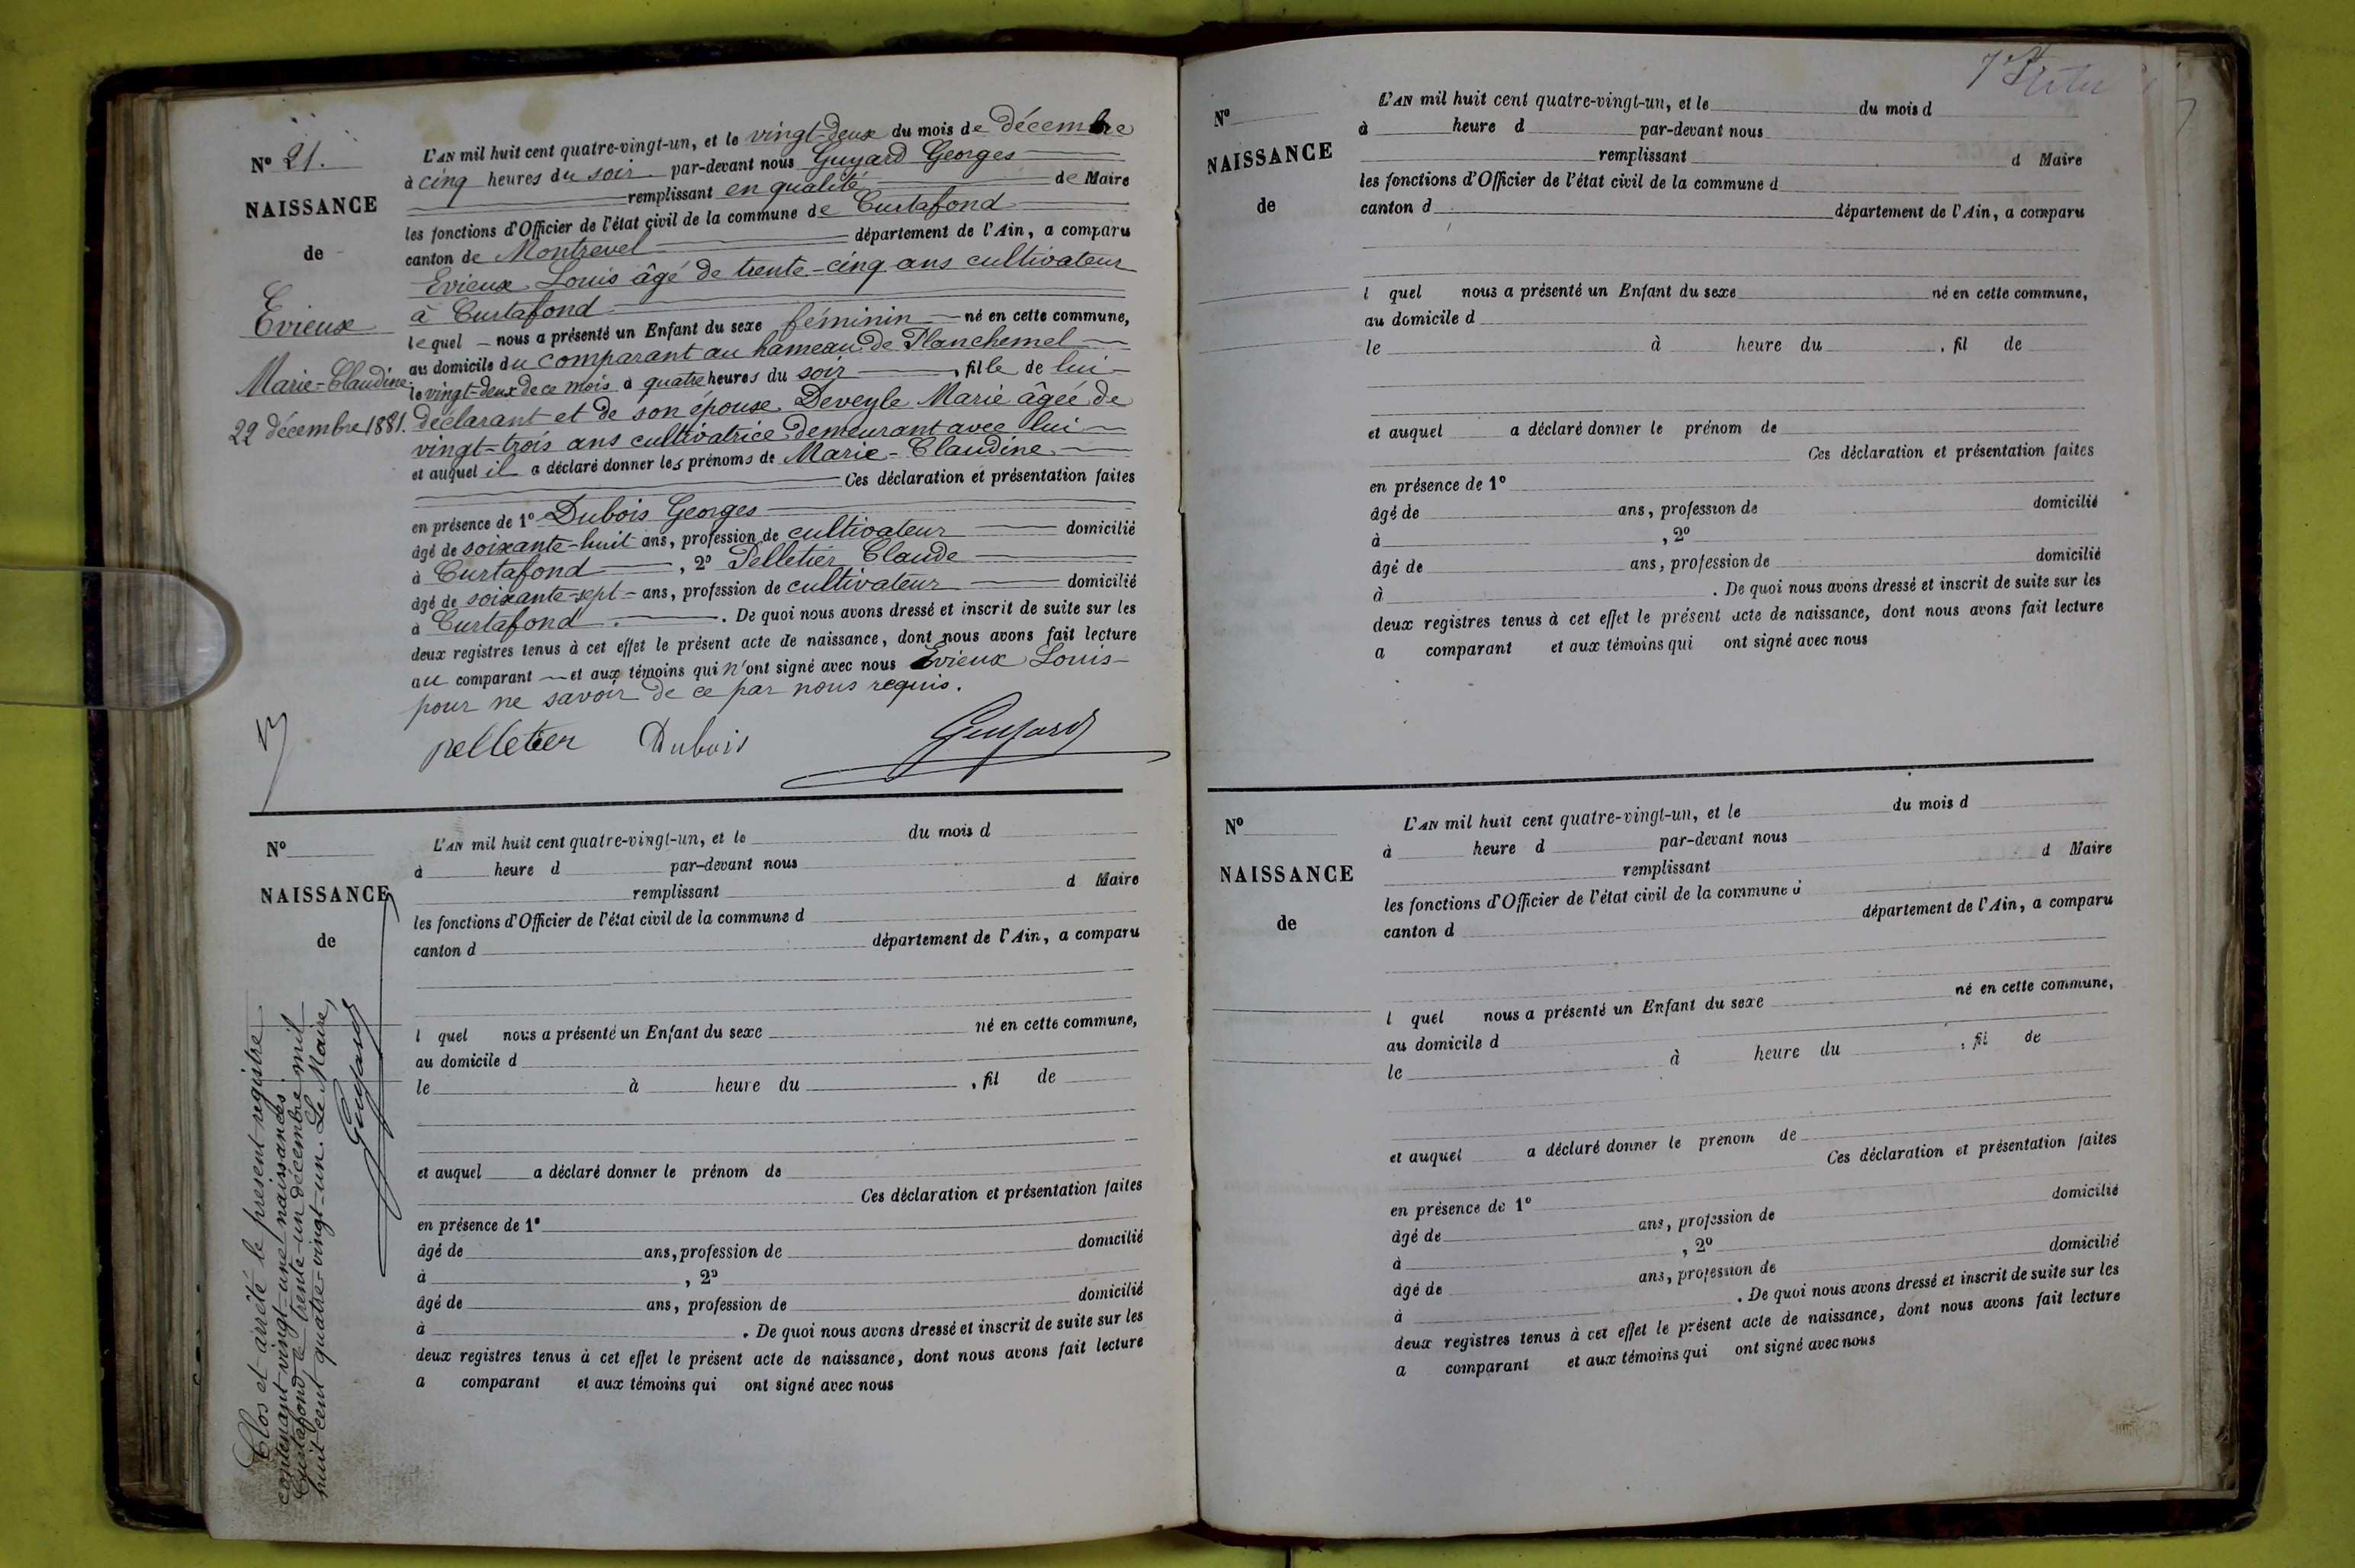 N° 21.
NAISSANCE
de
Evieux
Marie-Claudine
22 décembre 1881.
L'AN mil huit cent quatre-vingt-un, et le vingt-deux du mois de décembre
à cinq heures du soir par-devant nous Guyard Georges
remplissant en qualité de Maire
les fonctions d'Officier de l'état civil de la commune de Curtafond
canton de Montrevel département de l'Ain, a comparu
Evieux Louis âgé de trente-cinq ans cultivateur
à Curtafond
lequel nous a présenté un Enfant du sexe féminin né en cette commune,
au domicile du comparant au hameau de Planchemel
le vingt-deux de ce mois à quatre heures du soir, fille de lui
déclarant et de son épouse Deveyle Marie âgée de
vingt-trois ans cultivatrice demeurant avec lui
et auquel il a déclaré donner les prénoms de Marie-Claudine
Ces déclaration et présentation faites
en présence de 1° Dubois Georges
âgé de soixante-huit ans, profession de cultivateur domicilié
à Curtafond, 2° Pelletier Claude
âgé de soixante-sept ans, profession de cultivateur domicilié
à Curtafond. De quoi nous avons dressé et inscrit de suite sur les
deux registres tenus à cet effet le présent acte de naissance, dont nous avons fait lecture
au comparant et aux témoins qui n'ont signé avec nous Evieux Louis
pour ne savoir de ce par nous requis.
pelletier Dubois Guyard
N°
NAISSANCE
de
L'AN mil huit cent quatre-vingt-un, et le du mois d
à heure d par-devant nous
remplissant d Maire
les fonctions d'Officier de l'état civil de la commune d
canton d département de l'Ain, a comparu
l quel nous a présenté un Enfant du sexe né en cette commune,
au domicile d
le à heure du , fil de
et auquel a déclaré donner le prénom de
Ces déclaration et présentation faites
en présence de 1°
âgé de ans, profession de domicilié
à , 2°
âgé de ans, profession de domicilié
à . De quoi nous avons dressé et inscrit de suite sur les
deux registres tenus à cet effet le présent acte de naissance, dont nous avons fait lecture
a comparant et aux témoins qui ont signé avec nous
Clos et arrêté le présent registre
contenant vingt-une naissances
Curtafond le trente-un décembre mil
huit cent quatre-vingt-un. Le Maire,
Guyard
N°
NAISSANCE
de
L'AN mil huit cent quatre-vingt-un, et le du mois d
à heure d par-devant nous
remplissant d Maire
les fonctions d'Officier de l'état civil de la commune d
canton d département de l'Ain, a comparu
l quel nous a présenté un Enfant du sexe né en cette commune,
au domicile d
le à heure du , fil de
et auquel a déclaré donner le prénom de
Ces déclaration et présentation faites
en présence de 1°
âgé de ans, profession de domicilié
à , 2°
âgé de ans, profession de domicilié
à . De quoi nous avons dressé et inscrit de suite sur les
deux registres tenus à cet effet le présent acte de naissance, dont nous avons fait lecture
a comparant et aux témoins qui ont signé avec nous
N°
NAISSANCE
de
L'AN mil huit cent quatre-vingt-un, et le du mois d
à heure d par-devant nous
remplissant d Maire
les fonctions d'Officier de l'état civil de la commune d
canton d département de l'Ain, a comparu
l quel nous a présenté un Enfant du sexe né en cette commune,
au domicile d
le à heure du , fil de
et auquel a déclaré donner le prenom de
Ces déclaration et présentation faites
en présence de 1°
âgé de ans, profession de domicilié
à , 2°
âgé de ans, profession de domicilié
à . De quoi nous avons dressé et inscrit de suite sur les
deux registres tenus à cet effet le présent acte de naissance, dont nous avons fait lecture
a comparant et aux témoins qui ont signé avec nous